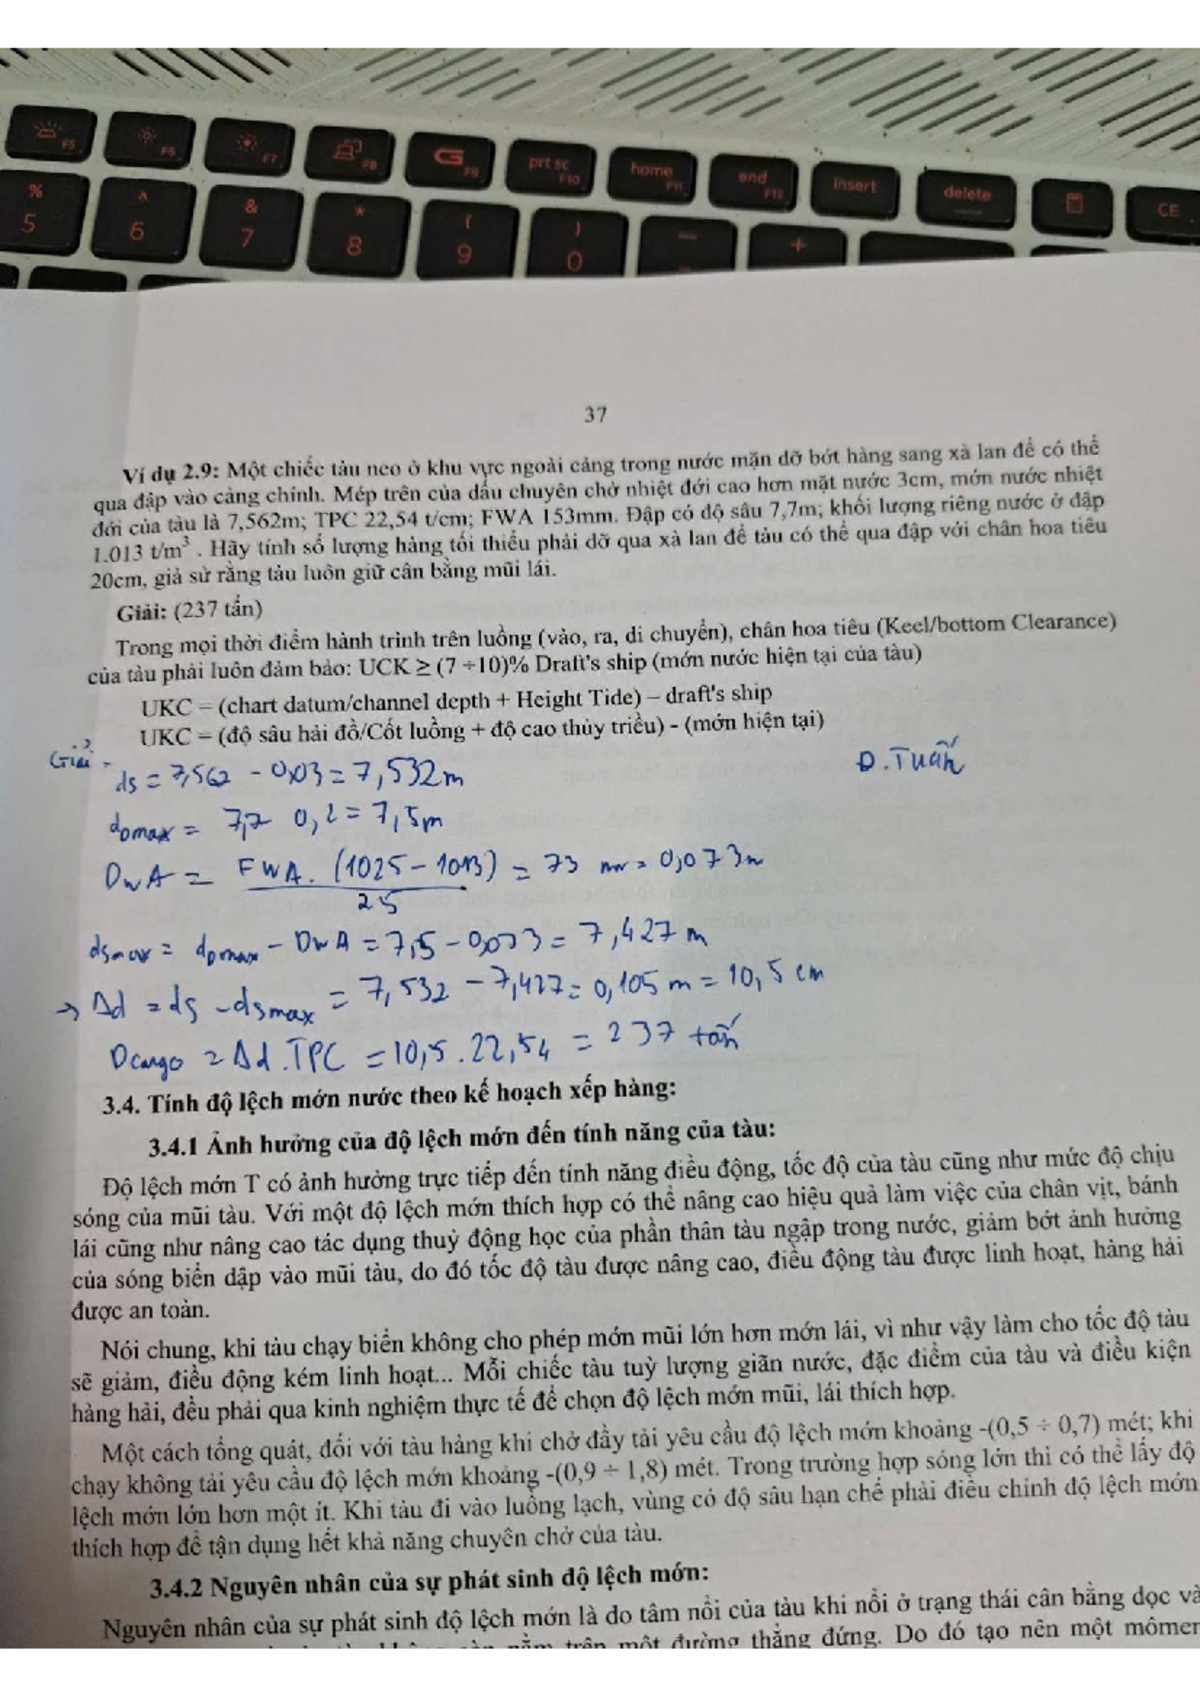 F5 F6 F7 F8 G F9 prt sc F10 home F11 end F12 insert delete CE
% 5 ^ 6 & 7 * 8 ( 9 ) 0 — - +
37
Ví dụ 2.9: Một chiếc tàu neo ở khu vực ngoài cảng trong nước mặn dỡ bớt hàng sang xà lan để có thể
qua đập vào cảng chính. Mép trên của dấu chuyên chở nhiệt đới cao hơn mặt nước 3cm, mớn nước nhiệt
đới của tàu là 7,562m; TPC 22,54 t/cm; FWA 153mm. Đập có độ sâu 7,7m; khối lượng riêng nước ở đập
1.013 t/m³ . Hãy tính số lượng hàng tối thiểu phải dỡ qua xà lan để tàu có thể qua đập với chân hoa tiêu
20cm, giả sử rằng tàu luôn giữ cân bằng mũi lái.
Giải: (237 tấn)
Trong mọi thời điểm hành trình trên luồng (vào, ra, di chuyển), chân hoa tiêu (Keel/bottom Clearance)
của tàu phải luôn đảm bảo: UCK ≥ (7 ÷10)% Draft's ship (mớn nước hiện tại của tàu)
UKC = (chart datum/channel depth + Height Tide) – draft's ship
UKC = (độ sâu hải đồ/Cốt luồng + độ cao thủy triều) - (mớn hiện tại)
Giải - ds = 7,562 - 0,03 = 7,532m Đ.Tuấn
dDmax = 7,7 0,2 = 7,5m
DWA = FWA. (1025 - 1013) / 25 = 73 mm = 0,073m
dsmax = dDmax - DWA = 7,5 - 0,073 = 7,427 m
→ Δd = ds - dsmax = 7,532 - 7,427 = 0,105 m = 10,5 cm
Dcargo = Δd.TPC = 10,5.22,54 = 237 tấn
3.4. Tính độ lệch mớn nước theo kế hoạch xếp hàng:
3.4.1 Ảnh hưởng của độ lệch mớn đến tính năng của tàu:
Độ lệch mớn T có ảnh hưởng trực tiếp đến tính năng điều động, tốc độ của tàu cũng như mức độ chịu
sóng của mũi tàu. Với một độ lệch mớn thích hợp có thể nâng cao hiệu quả làm việc của chân vịt, bánh
lái cũng như nâng cao tác dụng thuỷ động học của phần thân tàu ngập trong nước, giảm bớt ảnh hưởng
của sóng biển dập vào mũi tàu, do đó tốc độ tàu được nâng cao, điều động tàu được linh hoạt, hàng hải
được an toàn.
Nói chung, khi tàu chạy biển không cho phép mớn mũi lớn hơn mớn lái, vì như vậy làm cho tốc độ tàu
sẽ giảm, điều động kém linh hoạt... Mỗi chiếc tàu tuỳ lượng giãn nước, đặc điểm của tàu và điều kiện
hàng hải, đều phải qua kinh nghiệm thực tế để chọn độ lệch mớn mũi, lái thích hợp.
Một cách tổng quát, đối với tàu hàng khi chở đầy tải yêu cầu độ lệch mớn khoảng -(0,5 ÷ 0,7) mét; khi
chạy không tải yêu cầu độ lệch mớn khoảng -(0,9 ÷ 1,8) mét. Trong trường hợp sóng lớn thì có thể lấy độ
lệch mớn lớn hơn một ít. Khi tàu đi vào luồng lạch, vùng có độ sâu hạn chế phải điều chỉnh độ lệch mớn
thích hợp để tận dụng hết khả năng chuyên chở của tàu.
3.4.2 Nguyên nhân của sự phát sinh độ lệch mớn:
Nguyên nhân của sự phát sinh độ lệch mớn là do tâm nổi của tàu khi nổi ở trạng thái cân bằng dọc và
nằm trên một đường thẳng đứng. Do đó tạo nên một mômen